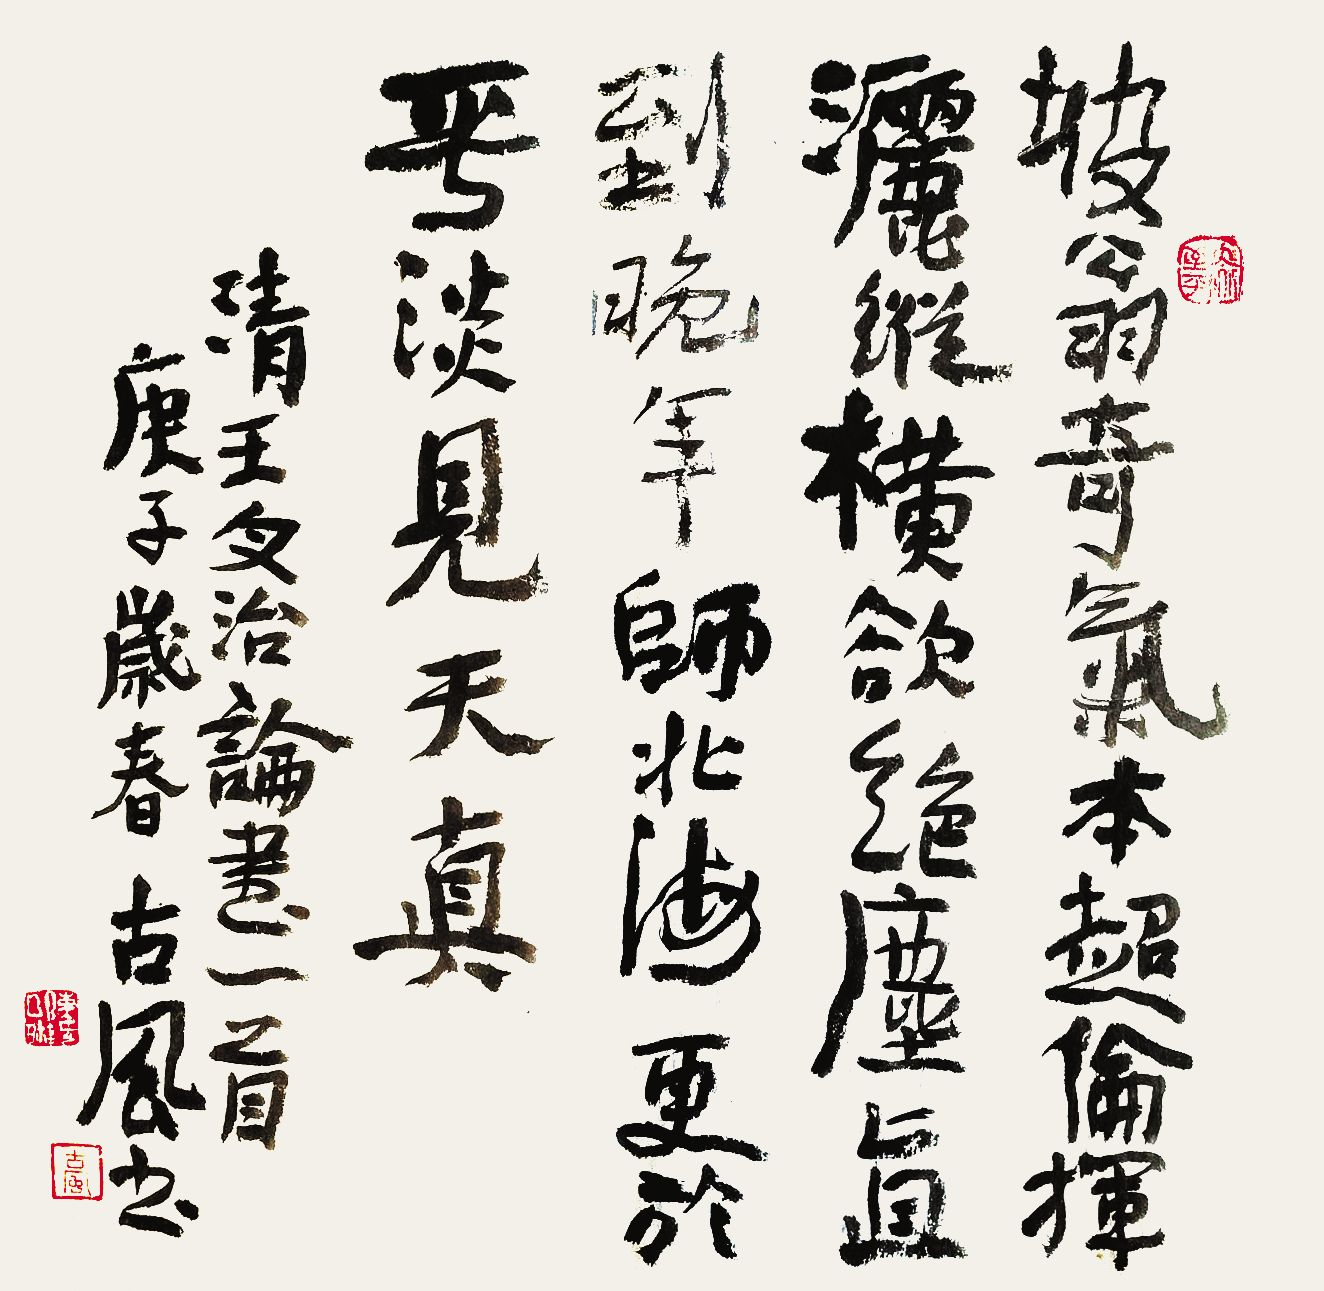 坡翁奇氣本超倫揮
灑縱橫欲絕塵直
到晚年師北海更於
平淡見天真
清王文治論書一首
庚子歲春古風书
古風